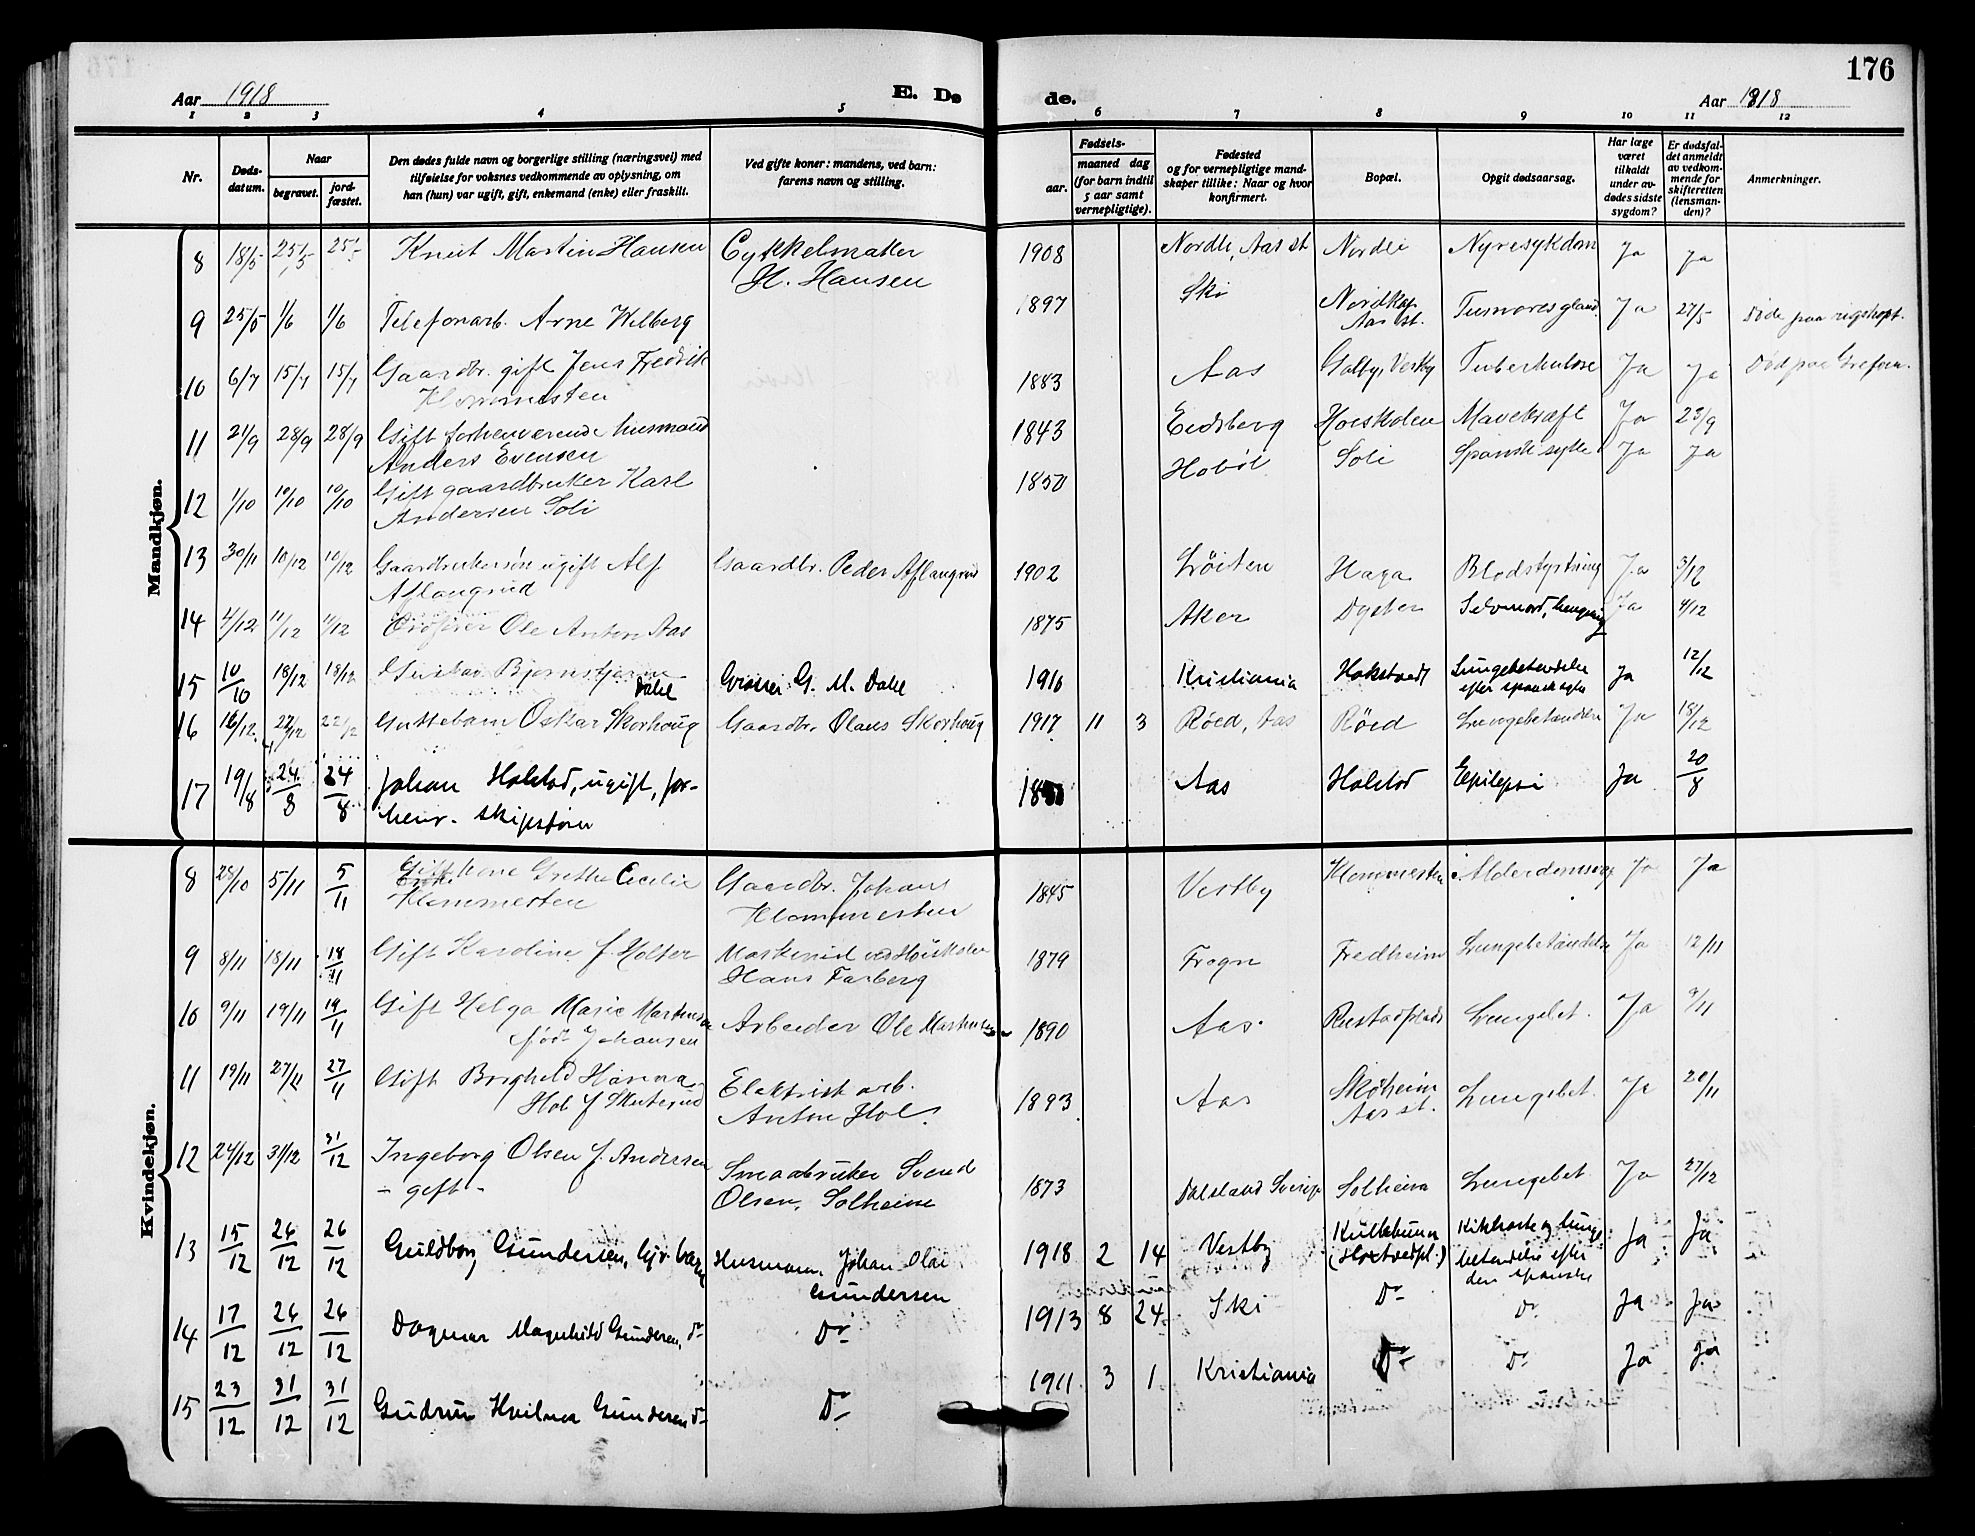 176
Aar 1918
E. Dø
de.
Aar 1918
1 2 3 4 5 6 7 8 9 10 11 12
Nr.
Døds-
datum.
Naar
begravet.
jord-
fæstet.
Den dødes fulde navn og borgerlige stilling (næringsvei) med
tilføielse for voksnes vedkommende av oplysning, om
han (hun) var ugift, gift, enkemand (enke) eller fraskilt.
Ved gifte koner: mandens, ved barn:
farens navn og stilling.
Fødsels-
aar.
maaned dag
(for barn indtil
5 aar samt
vernepligtige).
Fødested
og for vernepligtige mand-
skaper tillike: Naar og hvor
konfirmert.
Bopæl.
Opgit dødsaarsag.
Har læge
været
tilkaldt
under av-
dødes sidste
sygdom?
Er dødsfal-
det anmeldt
av vedkom-
mende for
skifteretten
(lensman-
den)?
Anmerkninger.
Mandkjøn.
8 18/5 25/5 25/5 Knut Martin Hansen Cykkelmaker 1908 Nordli, Aas st Nordli Nyresykdom Ja Ja
H. Hansen
9 25/5 1/6 1/6 Telefonarb. Arne Wilberg 1897 Ski Nordkap Ja 27/5 Døde paa rigshospt.
Aas st.
10 6/7 15/7 15/7 Gaardbr. gift Jens Fredrik 1883 Aas Tuberkulose Ja Ja Død paa Grefsen.
Klommesten
11 21/9 28/9 28/9 Gift forhenværende husmand 1843 Eidsberg Høiskolen Mavekræft Ja 23/9
Anders Evensen
12 1/10 10/10 10/10 Gift gaardbruker Karl 1850 Hobøl Soli Spanske syke Ja Ja
Andersen Soli
13 30/11 10/12 10/12 Gaardbrukersøn ugift Alf Gaardbr. Peder Aflangrud 1902 Løiten Haga Blodstyrtning Ja 5/12
Aflangrud
14 4/12 11/12 11/12 Ole Anton Aas 1875 Aker Dyster Selvmord, hengning Ja 4/12
15 10/10 18/12 18/12 Gustav Bjørnstjerne Grosser G. M. Dahl 1916 Kristiania Hokstvedt Lungebetændelse Ja 12/12
Dahl efter spansk syke
16 16/12 27/12 22/12 Guttebarn Oskar Skorhoug Gaardbr. Olaus Skorhoug 1917 11 3 Røed, Aas Røed Lungebetændelse Ja 18/12
17 19/8 24/8 24/8 Johan Holstad, ugift, for- Aas Holstad Epilepsi Ja 20/8
henv. skipsfører
Kvindekjøn.
8 28/10 5/11 5/11 Gift kone Grethe Cecilie Gaardbr. Johans 1845 Vestby Klommesten Alderdomssvag Ja Ja
Enke
Klommesten Klommesten
9 8/11 18/11 18/11 Gift Karoline f. Holter Maskinist ved Høiskolen 1879 Frogn Fredheim Lungebetændelse Ja 12/11
Hans Farberg
10 9/11 19/11 19/11 Gift Helga Marie Martinsen Arbeider Ole Martinsen 1890 Aas. Rustadplads Lungebet. Ja 9/11
fød Johansen
11 19/11 27/11 27/11 Gift Borghild Hanna Elektrisk arb. 1893 Aas Skoheim Lungebet. Ja 20/11
Hol f Skuterud Anton Hol Aas st.
12 24/12 31/12 31/12 Ingeborg Olsen f. Andersen Smaabruker Svend 1873 Dalsland Sverige Solheim Lungebet. Ja 27/12
- gift - Olsen, Solheim
13 15/12 26/12 26/12 Guldborg Gundersen, hjv. barn Husmann. Johan Olai 1918 2 14 Vestby Kullebunn Kikhoste og lunge- Ja Ja
Gundersen (Hoxtvedpl.) betændelse efter
den spanske
14 17/12 26/12 26/12 Dagmar Magnhild Gundersen, do Do 1913 8 24 Ski Do Do Ja Ja
15 23/12 31/12 31/12 Gudrun Gundersen do Do 1911 3 1 Kristiania Do Do Ja Ja